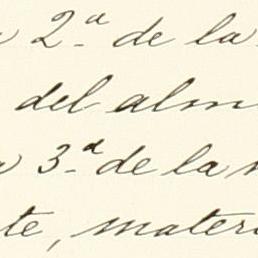 a 2.ª de la
del alm
a 3.ª de la n
te, materi